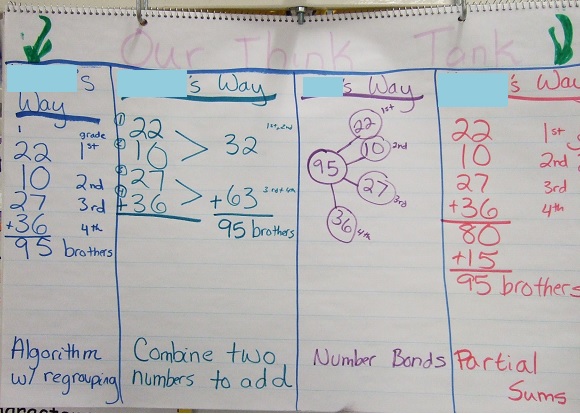 Our Think Tank
's
Way
1 grade
22 1st
10 2nd
27 3rd
+36 4th
95 brothers
Algorithm
w/ regrouping
's Way
① 22
② 10
32 1st, 2nd
③ 27
④ +36
+63 3rd + 4th
95 brothers
Combine two
numbers to add
's Way
22 1st
10 2nd
95
27 3rd
36 4th
Number Bonds
's Way
22 1st
10 2nd
27 3rd
+36 4th
80
+15
95 brothers
Partial
Sums